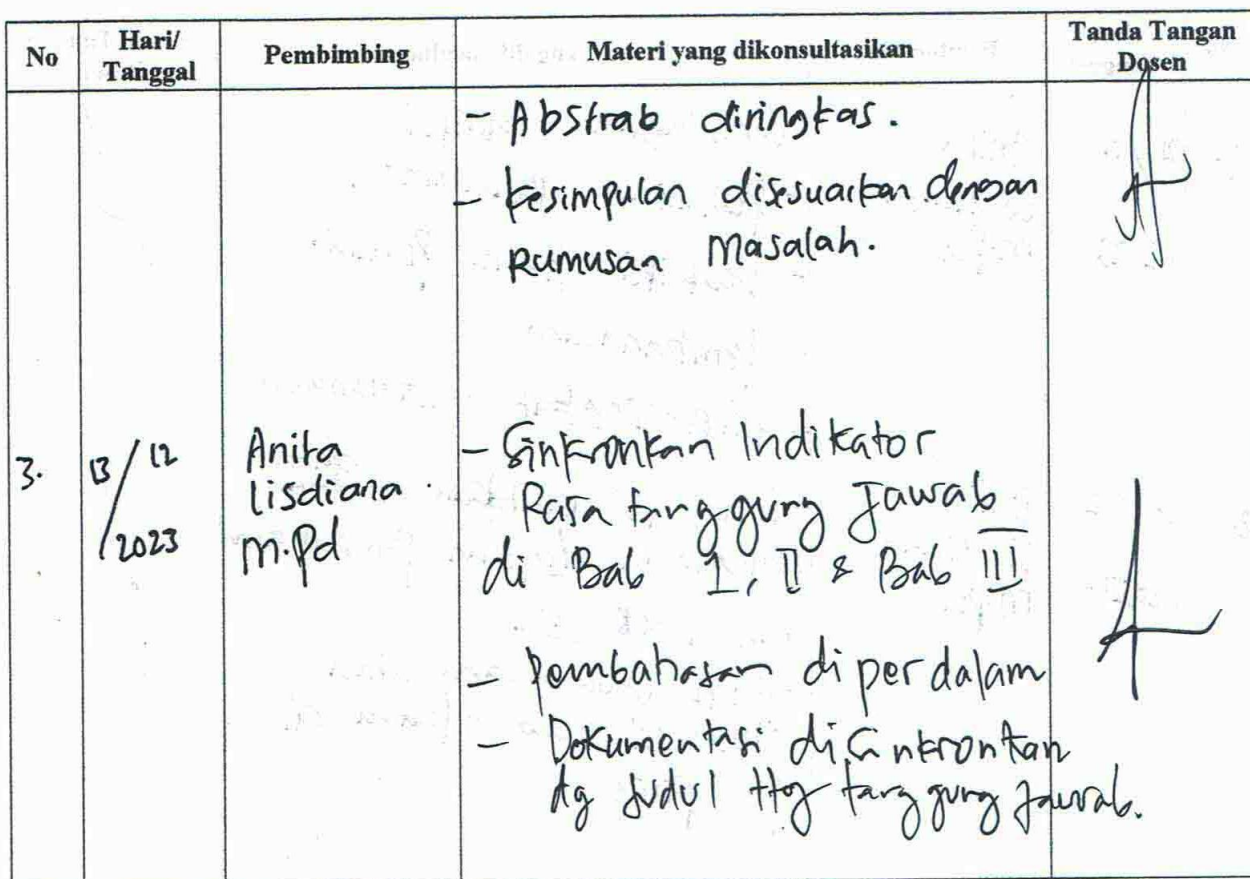 No Hari/ Tanggal Pembimbing Materi yang dikonsultasikan Tanda Tangan Dosen
- Abstrab diringkas.
- Kesimpulan disesuaikan dengan
Rumusan Masalah.
3. 13/12/2023 Anita Lisdiana M.Pd
- Sinkronkan Indikator
Rasa tanggung Jawab
di Bab I, II & Bab III
- Pembahasan diperdalam
- Dokumentasi disinkronkan
dg Judul ttg tanggung Jawab.